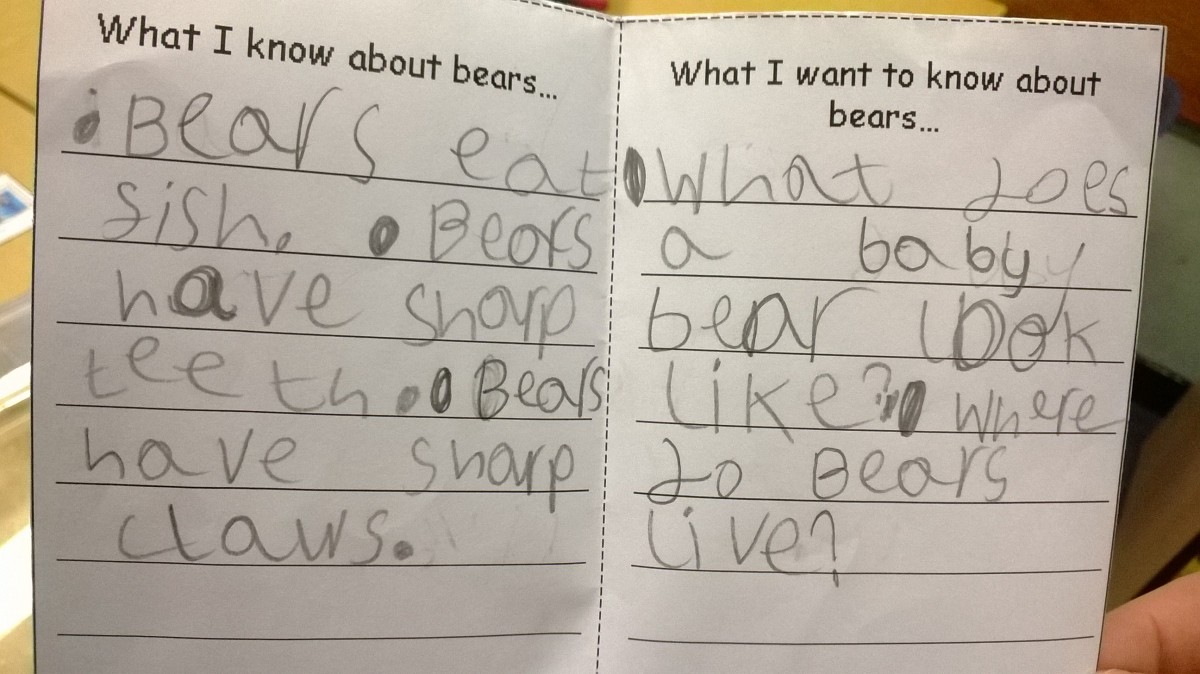 What I know about bears...
• Bears eat
fish. • Bears
have sharp
teeth. • Bears
have sharp
claws.
What I want to know about
bears...
• What does
a baby
bear look
like? • Where
do Bears
live?